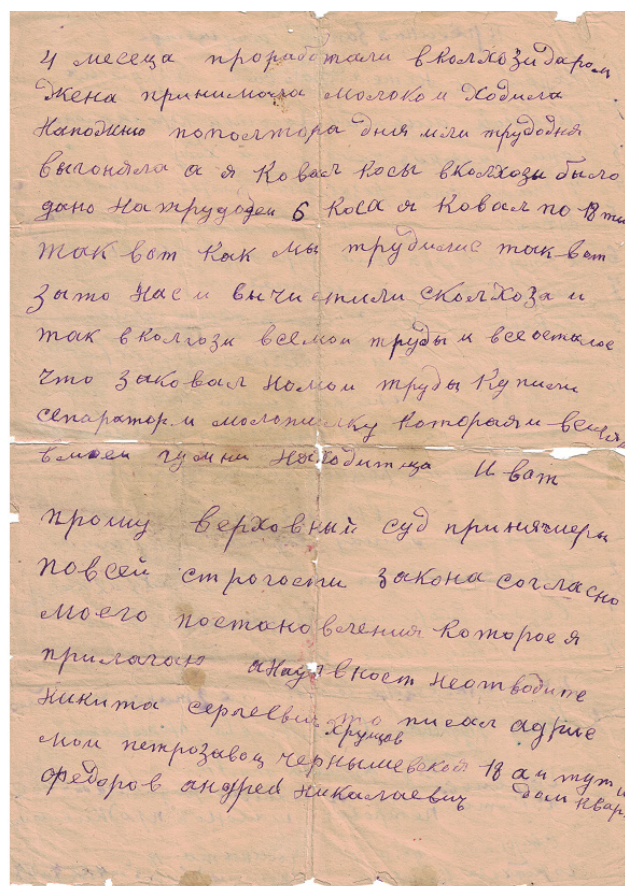 4 месеца проработали вколхози даром
жена принимала молоко и ходила
напожню пополтора дня или трудодня
выгоняла а я ковал косы вколхозы было
дано натрудоден 6 коса я ковал по 18 ти
так вот как мы трудилис так вот
зато нас и вычистили сколхоза и
так вколгози всемои труды и всеосталое
что заковал намои труды купили
сепаратор и молотилку которая и
вмоей гумни находитца И вот
прошу верховный суд принятмеры
повсей строгости закона согласно
моего постановления котороея
прилагаю неотводите
никита сергеевич хрущов это писал адрис
мои петрозавоц чернышевской 18 а и тут и
федоров андрей николаевич дом квар